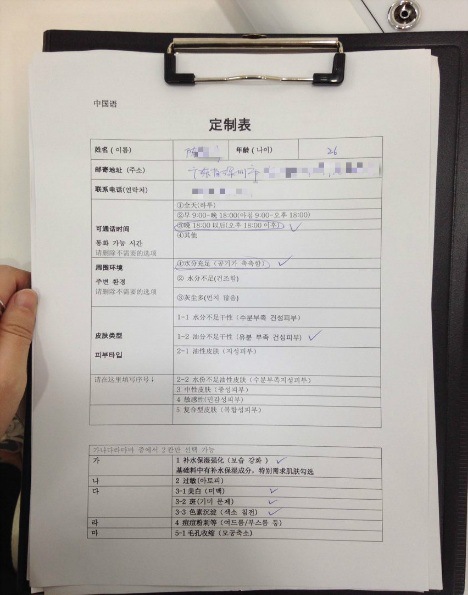 中国语
定制表
姓名(이름) 陈 年龄(나이) 26
邮寄地址(주소) 广东省深圳市
联系电话(연락처)
可通话时间
통화 가능 시간
请删除不需要的选项
①全天(하루)
②早 9:00-晚 18:00(아침 9:00-오후 18:00)
③晚 18:00 以后(오후 18:00 이후)
④其他
周围环境
주변 환경
请删除不需要的选项
①水分充足(공기가 촉촉함)
② 水分不足(건조함)
③灰尘多(먼지 많음)
皮肤类型
피부타입
1-1 水分不足干性(수분부족 건성피부)
1-2 油分不足干性(유분 부족 건성피부)
2-1 油性皮肤(지성피부)
请在这里填写序号↓
2-2 水份不足油性皮肤(수분부족지성피부)
3 中性皮肤(중성피부)
4 敏感性(민감성피부)
5 复合型皮肤(복합성피부)
가나다라마바 중에서 2 칸만 선택 가능
가 1 补水保湿强化(보습 강화)
基础料中有补水保湿成分，特别需求肌肤勾选
나 2 过敏(아토피)
다 3-1 美白(미백)
3-2 斑(기미 문제)
3-3 色素沉淀(색소 침전)
라 4 痘痘粉刺等(여드름/뾰루지 등)
마 5-1 毛孔收缩(모공축소)